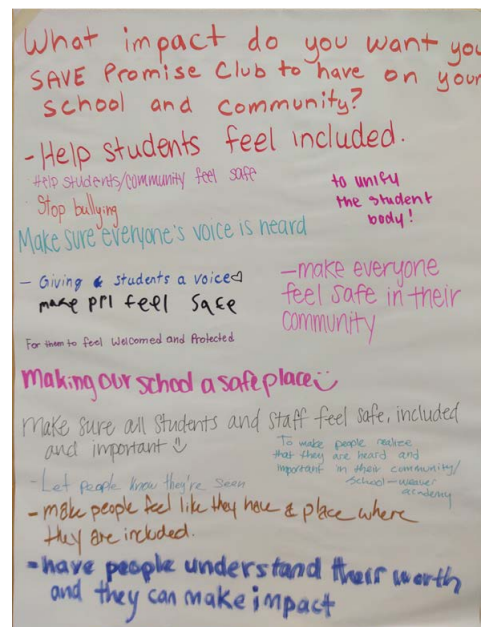 What impact do you want you
SAVE Promise Club to have on your
school and community?
-Help students feel included.
Help students/community feel safe
to unify
the student
body!
Stop bullying
Make sure everyone's voice is heard
- Giving students a voice♡
make ppl feel safe
-make everyone
feel safe in their
community
For them to feel welcomed and Protected
Making our school a safe place
make sure all students and staff feel safe, included
and important
To make people realize
that they are heard and
important in their community/
school-weaver
academy
-Let people know they're seen
-make people feel like they have a place where
they are included.
-have people understand their worth
and they can make impact